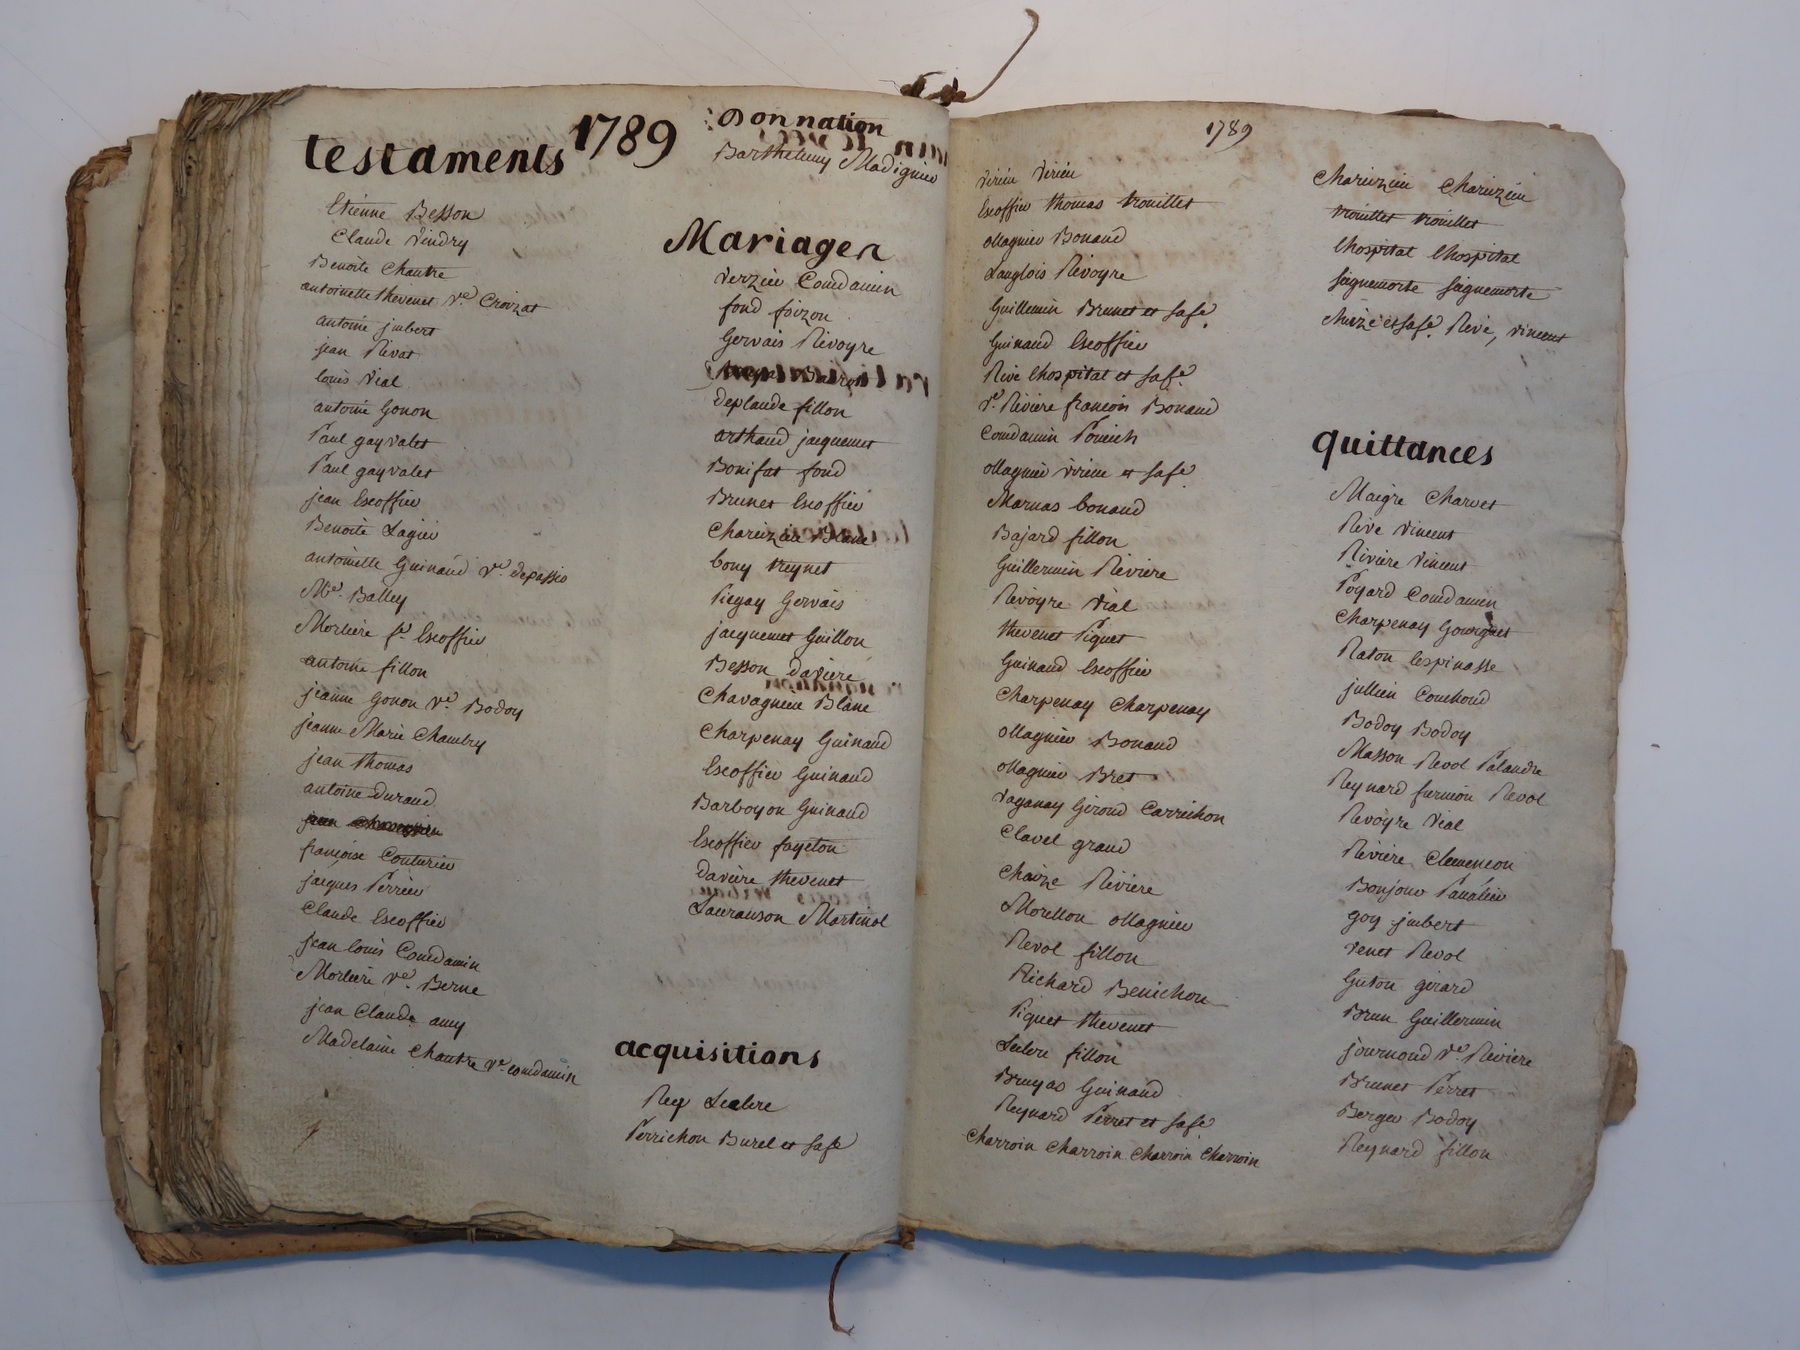 1789
testaments
Etienne Besson
Claude Vindry
Benoite Chantre
antoinette thevenet Ve. Croizat
antoine jmbert
jean Rivat
louis Vial
antoine Gonon
Paul gayvalet
Paul gayvalet
jean Escoffier
Benoite Lagier
antoinette Guinand Ve. depassio
Me. Balley
Morliere fe. Escoffier
antoine fillon
jeanne Gonon Ve. Bodoy
jeanne Marie Chambry
jean thomas
antoine durand
jean
françoise Couturier
jacques Perrier
Claude Escoffier
jean louis Coindamin
Morliere Ve. Berne
jean Claude amy
Madelaine Chantre Ve. coindamin
Donnation
Barthelemy Madignier
Mariages
Verzier Coindamin
fond foizon
Gervais Rivoyre
deplaude fillon
arthaud jacquemet
Bonifat fond
Brunet Escoffier
Chareizieu Blanc
bony treynet
Piegay Gervais
jacquemet Guillon
Besson daviere
Chavagneux Blanc
Charpenay Guinaud
Escoffier Guinaud
Barboyon Guinaud
Escoffier fayeton
daviere thevenet
Lauranson Martinol
acquisitions
Rey Leabre
Perrichon Burel et sa fe
1789
Virieu Virieu
Escoffier thomas trouillet
ollagnier Bonaud
Langlois Rivoyre
Guillemin Brunet et sa fe.
Guinaud Escoffier
Rive lhospital et sa fe.
Ve. Riviere francois Bonaud
Coindamin Poncet
ollagnier Virieu et sa fe
Marnas bonaud
Bajard fillon
Guillermin Riviere
Rivoyre Vial
thevenet Piquet
Guinaud Escoffier
Charpenay Charpenay
ollagnier Bonaud
ollagnier Bret
Vaganay Giroud Carrichon
Clavel graud
Chaize Riviere
Morellon ollagnier
Revol fillon
Richard Benichon
Piquet thevenet
Leabre fillon
Bruyas Guinaud
Reynard Perret et sa fe
Charroin Charroin Charroin Charroin
Chareizieu Chareizieu
trouillet trouillet
lhospital lhospital
saignemorte saignemorte
Chaize et sa fe. Rive, Vincent
quittances
Maigre Charvet
Rive Vincent
Riviere Vincent
Poyard Coindamin
Charpenay Gourguet
Raton lespinasse
jullien Couchoud
Bodoy Bodoy
Masson Revol Palandre
Reynard furnion Revol
Rivoyre Vial
Riviere Clemencon
Bonjour Panalier
goy jmbert
Venet Revol
Guton girard
Brun Guillermin
journoud Ve. Riviere
Brunet Perret
Berger Bodoy
Reynard fillon